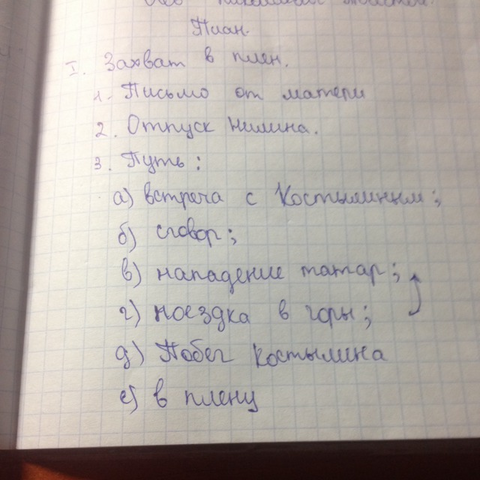 План.
I. Захват в плен.
1. Письмо от матери
2. Отпуск Жилина.
3. Путь:
а) встреча с Костылиным;
б) сговор;
в) нападение татар;
г) поездка в горы;
д) Побег Костылина
е) в плену